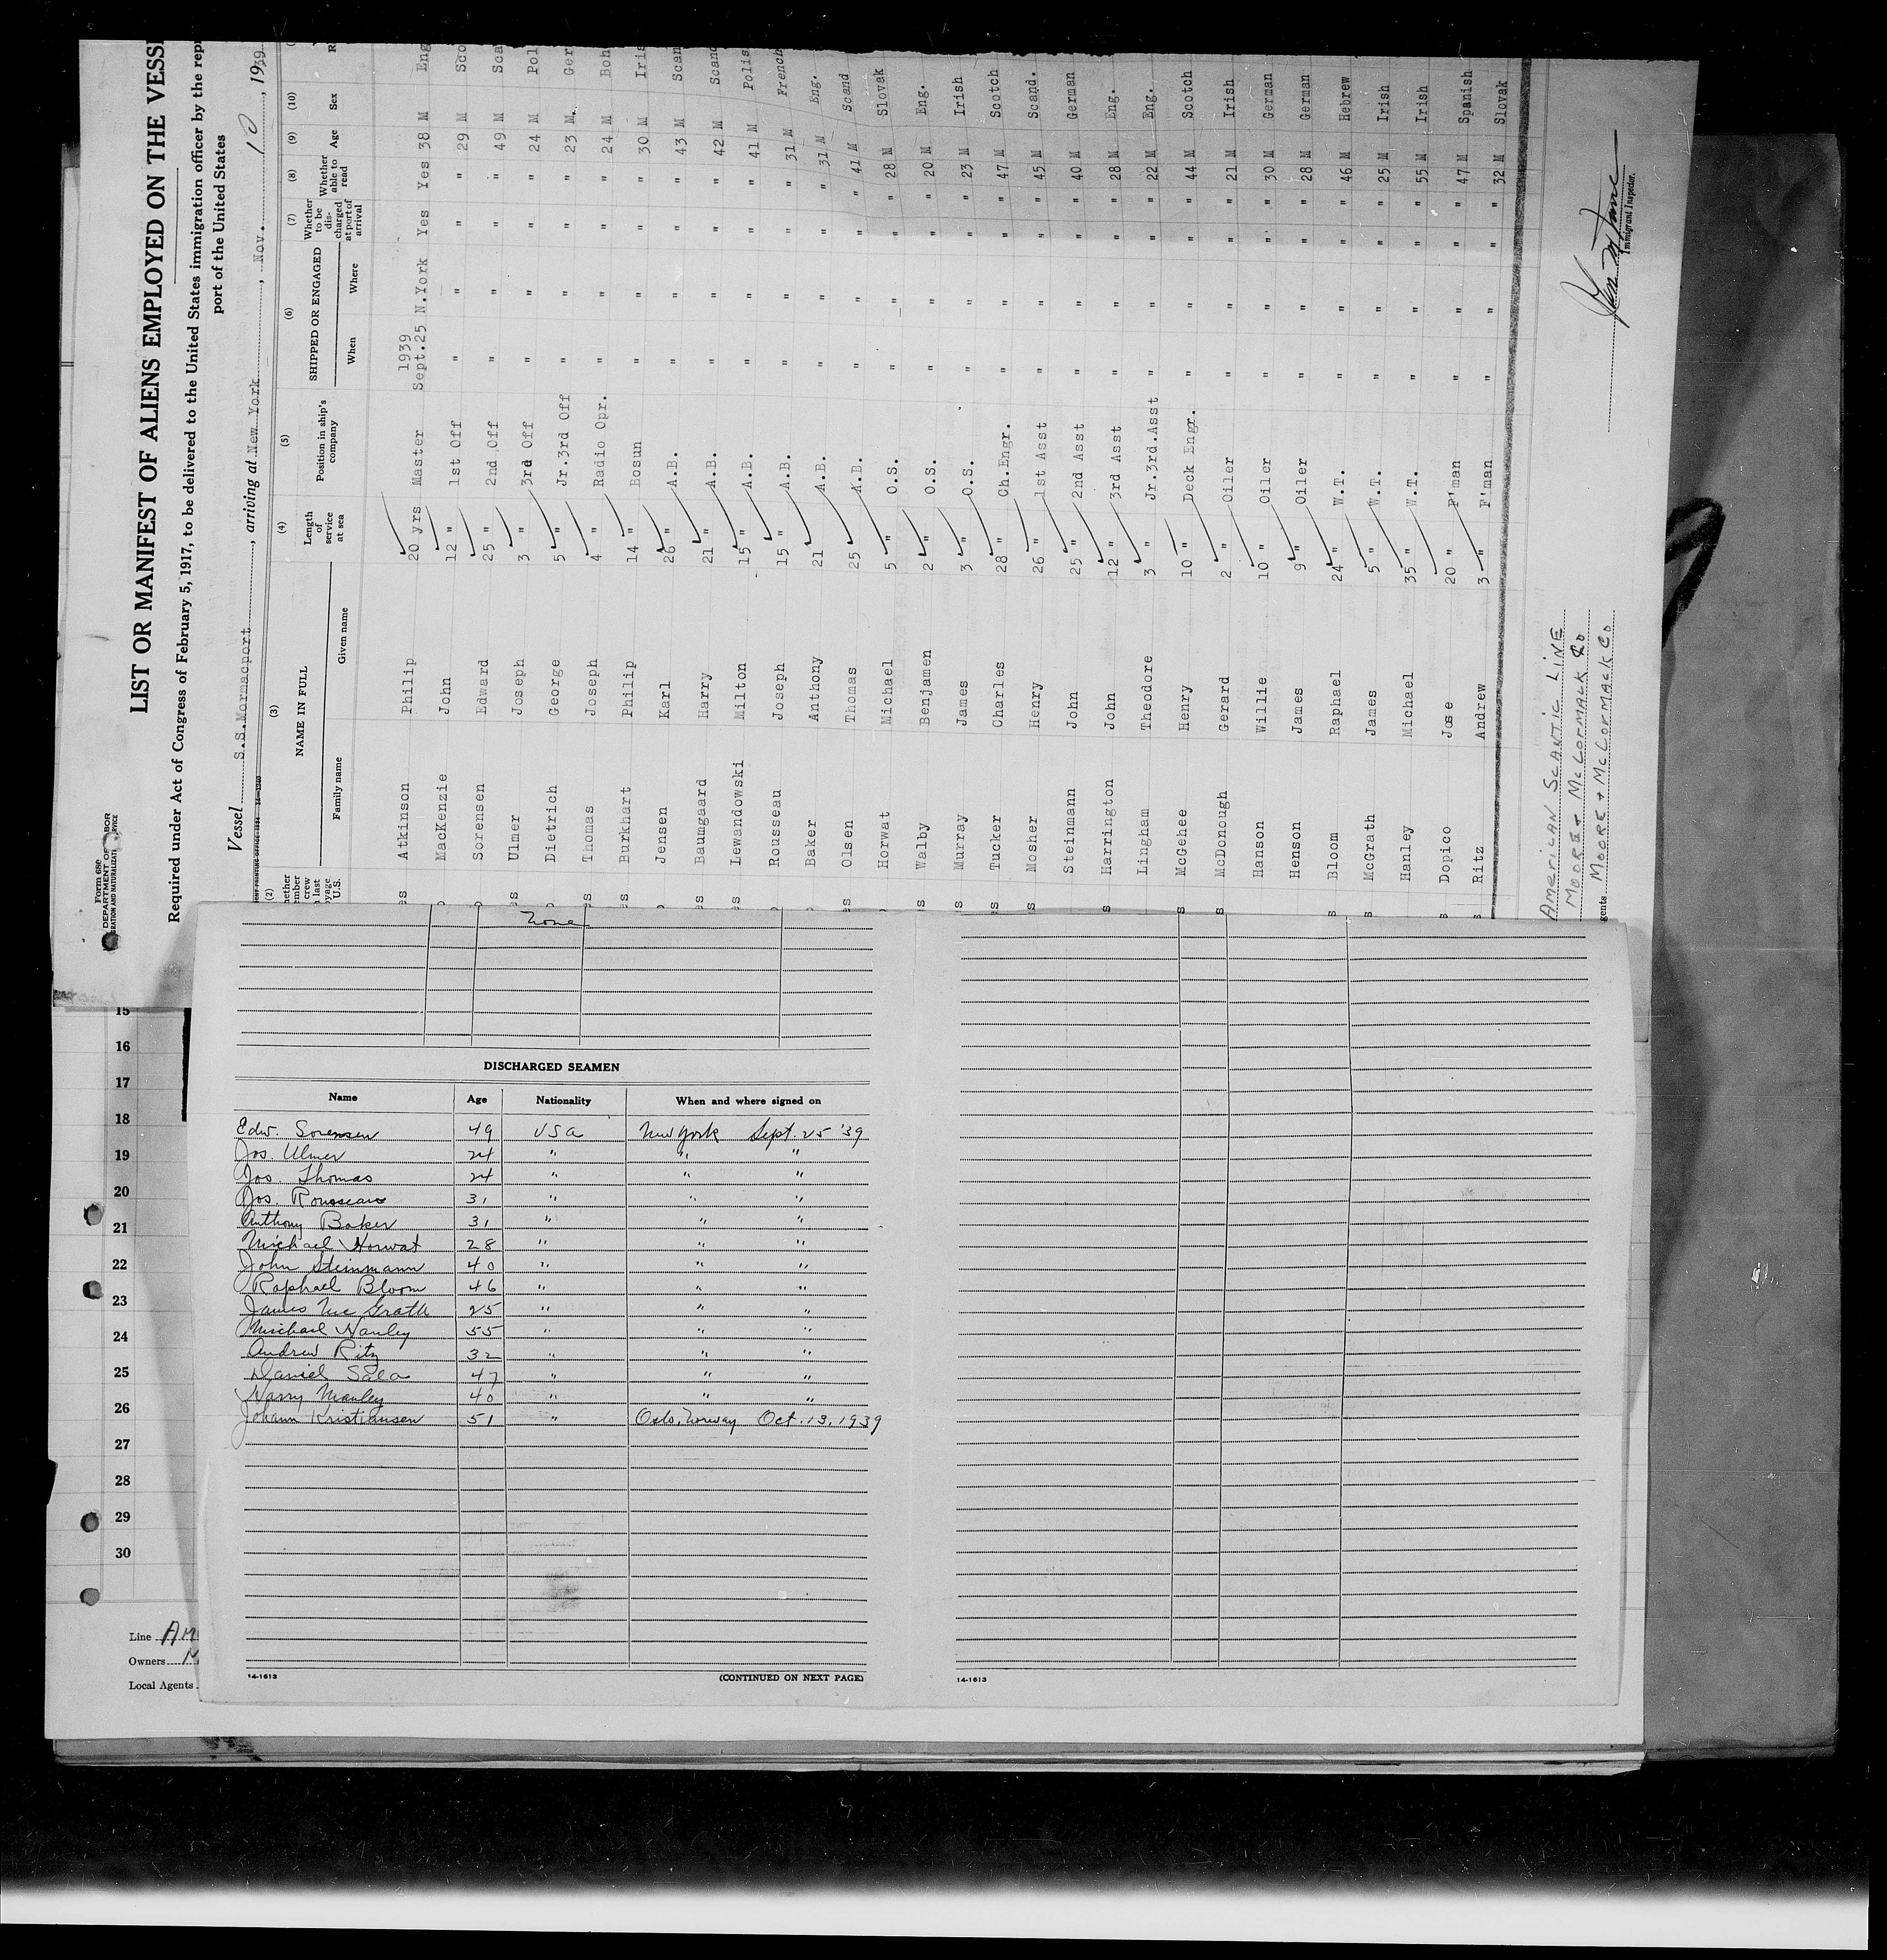 Form 689
LIST OR MANIFEST OF ALIENS EMPLOYED ON THE VESS
Required under Act of Congress of February 5, 1917, to be delivered to the United States immigration officer by the rep
port of the United States
Vessel S.S. Mormacport, arriving at New York, Nov. 10, 1939
(2) (3) (4) (5) (6) (7) (8) (9) (10)
NAME IN FULL Length of service at sea Position in ship's company SHIPPED OR ENGAGED Whether to be discharged at port of arrival Whether able to read Age Sex
Family name Given name When Where
1939
Atkinson Philip 20 yrs Master Sept.25 N.York Yes Yes 38 M Eng
MacKenzie John 12 " 1st Off " " " " 29 M Sco
Sorensen Edward 25 " 2nd Off " " " " 49 M Sca
Ulmer Joseph 3 " 3rd Off " " " " 24 M Pol
Dietrich George 5 " Jr.3rd Off " " " " 23 M Ger
Thomas Joseph 4 " Radio Opr. " " " " 24 M Boh
Burkhart Philip 14 " Bosun " " " " 30 M Iris
Jensen Karl 26 " A.B. " " " " 43 M Scan
Baumgaard Harry 21 " A.B. " " " " 42 M Scand
Lewandowski Milton 15 " A.B. " " " " 41 M Polis
Rousseau Joseph 15 " A.B. " " " " 31 M French
Baker Anthony 21 A.B. " " " " 31 M Eng.
Olsen Thomas 25 " A.B. " " " " 41 M Scand
Horwat Michael 5 " O.S. " " " " 28 M Slovak
Walby Benjamen 2 " O.S. " " " " 20 M Eng.
Murray James 3 " O.S. " " " " 23 M Irish
Tucker Charles 28 " Ch.Engr. " " " " 47 M Scotch
Mosher Henry 26 " 1st Asst " " " " 45 M Scand.
Steinmann John 25 " 2nd Asst " " " " 40 M German
Harrington John 12 " 3rd Asst " " " " 28 M Eng.
Lingham Theodore 3 " Jr.3rd.Asst " " " " 22 M Eng.
McGehee Henry 10 " Deck Engr. " " " " 44 M Scotch
McDonough Gerard 2 " Oiler " " " " 21 M Irish
Hanson Willie 10 " Oiler " " " " 30 M German
Henson James 9 " Oiler " " " " 28 M German
Bloom Raphael 24 " W.T. " " " " 46 M Hebrew
McGrath James 5 " W.T. " " " " 25 M Irish
Hanley Michael 35 " W.T. " " " " 55 M Irish
Dopico Jose 20 " F'man " " " " 47 M Spanish
Ritz Andrew 3 " F'man " " " " 32 M Slovak
AMERICAN SCANTIC LINE
MOORE + McCORMACK CO
gents MOORE + McCORMACK CO
Immigrant Inspector.
None
DISCHARGED SEAMEN
Name Age Nationality When and where signed on
Edw. Sorensen 49 USA New York Sept. 25 '39
Jos. Ulmer 24 " " "
Jos. Thomas 24 " " "
Jos. Rousseau 31 " " "
Anthony Baker 31 " " "
Michael Horwat 28 " " "
John Steinmann 40 " " "
Raphael Bloom 46 " " "
James McGrath 25 " " "
Michael Hanley 55 " " "
Andrew Ritz 32 " " "
Daniel Sala 47 " " "
Harry Manley 40 " " "
Johann Kristiansen 51 " Oslo, Norway Oct. 13, 1939
14-1613 (CONTINUED ON NEXT PAGE)
14-1613
15
16
17
18
19
20
21
22
23
24
25
26
27
28
29
30
Line AM
Owners M
Local Agents